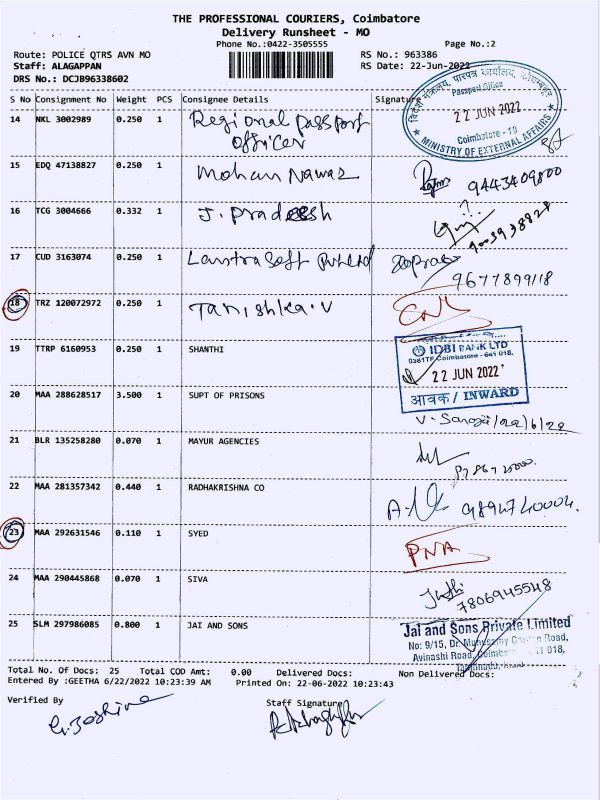 THE PROFESSIONAL COURIERS, Coimbatore
Delivery Runsheet - MO
Phone No.:0422-3505555 Page No.:2
Route: POLICE QTRS AVN MO RS No.: 963386
Staff: ALAGAPPAN RS Date: 22-Jun-2022
DRS No.: DCJB96338602
S No Consignment No Weight PCS Consignee Details Signature
विदेश मंत्रालय, पारपत्र कार्यालय, कोयम्बत्तूर
Passport Office
22 JUN 2022
Coimbatore - 19
★ MINISTRY OF EXTERNAL AFFAIRS ★
14 NKL 3002989 0.250 1 Regional passport
officer
15 EDQ 47138827 0.250 1 Mohan Nawaz 9443409800
16 TCG 3004666 0.332 1 J. Pradeesh
17 CUD 3163074 0.250 1 9677899118
18 TRZ 120072972 0.250 1 Tanishka.V
19 TTRP 6160953 0.250 1 SHANTHI
IDBI BANK LTD
Coimbatore - 641 018.
22 JUN 2022
आवक / INWARD
20 MAA 288628517 3.500 1 SUPT OF PRISONS
V. Saroji/22/6/22
21 BLR 135258280 0.070 1 MAYUR AGENCIES
22 MAA 281357342 0.440 1 RADHAKRISHNA CO
23 MAA 292631546 0.110 1 SYED PNA
24 MAA 290445868 0.070 1 SIVA
7806945548
25 SLM 297986085 0.800 1 JAI AND SONS
Jai and Sons Private Limited
No: 9/15, Dr. Munusamy Garden Road,
Avinashi Road, Coimbatore - 641 018,
Total No. Of Docs: 25 Total COD Amt: 0.00 Delivered Docs: Non Delivered Docs:
Entered By :GEETHA 6/22/2022 10:23:39 AM Printed On: 22-06-2022 10:23:43
Verified By Staff Signature